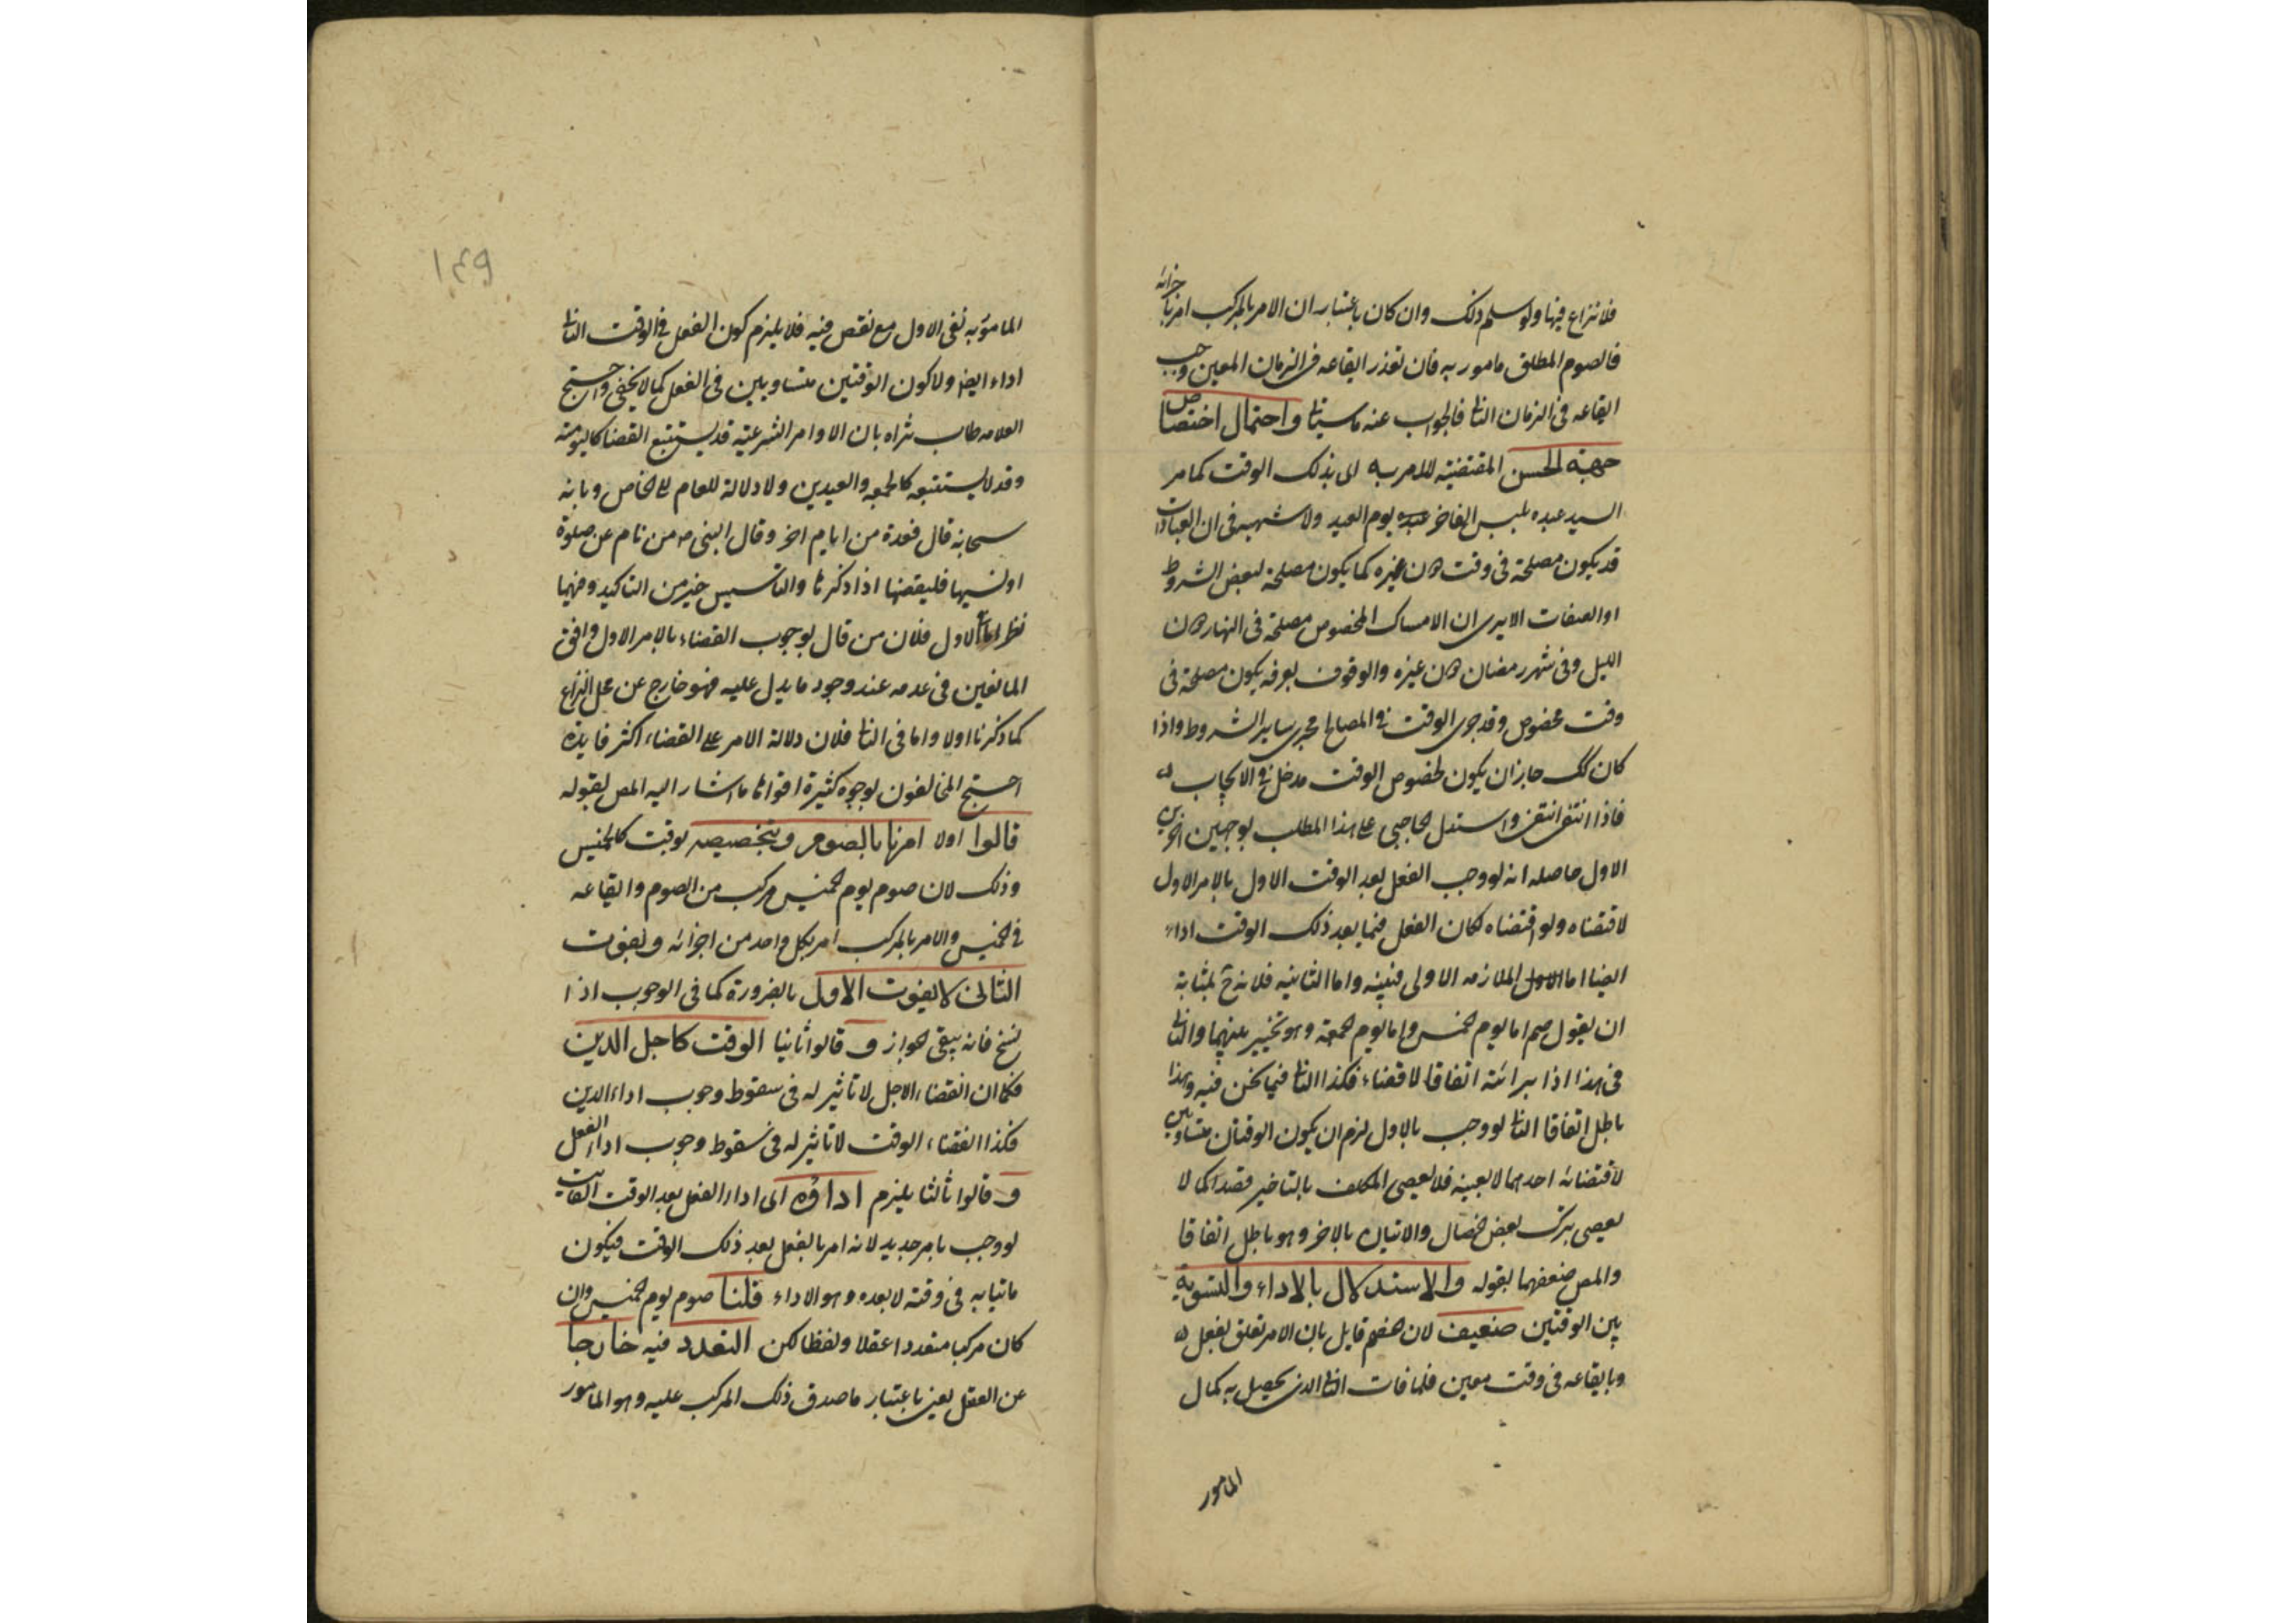 فلا نزاع فيها ولو سلم ذلك وان كان باعتبار ان الامر بالمركب امر باجزائه
فالصوم المطلق مامور به فان تعذر ايقاعه فى الزمان المعين وجب
ايقاعه فى الزمان الثانى فالجواب عنه ما سياتى واحتمال اختصاص
جهة الحسن المقتضية للامر به اى بذلك الوقت كما مر
السيد عبده بلبس الفاخر يوم العيد ولا شبهه فى ان العبادات
قد يكون مصلحة فى وقت دون غيره كما يكون مصلحة لبعض الشروط
او الصفات الا يرى ان الامساك المخصوص مصلحة فى النهار دون
الليل وفى شهر رمضان دون غيره والوقوف بعرفه يكون مصلحة فى
وقت مخصوص وقد جرى الوقت فى المصالح مجرى ساير الشروط واذا
كان كك جاز ان يكون لخصوص الوقت مدخل فى الايجاب
فاذا انتفى انتفى واستدل الحاجبى على هذا المطلب بوجهين اخرين
الاول حاصله انه لو وجب الفعل بعد الوقت الاول بالامر الاول
لاقتضاه ولو اقتضاه لكان الفعل فيما بعد ذلك الوقت اداء
ايضا اما الملازمه الاولى فبينه واما الثانيه فلانه ح بمثابة
ان يقول صم اما يوم خميس واما يوم جمعة وهو تخيير بينهما والثانى
فى هذا اداء براسه اتفاقا لا قضاء فكذا الثانى فيما نحن فيه وهذا
باطل اتفاقا الثانى لو وجب بالاول لزم ان يكون الوقتان متساويين
لاقتضائه احدهما لا بعينه فلا يعصى المكلف بالتاخير قصدا كما لا
يعصى بترك بعض خصال والاتيان بالاخر وهو باطل اتفاقا
والمص ضعفهما بقوله والاستدلال بالاداء والتسوية
بين الوقتين ضعيف لان خصم قايل بان الامر تعلق بفعل
وبايقاعه فى وقت معين فلما فات الثانى الذى يحصل به كمال
المامور
١٤٩
المامور به نفى الاول مع نقص فيه فلا يلزم كون الفعل فى الوقت الثانى
اداء ايضا ولا كون الوقتين متساويين فى الفعل كما لا يخفى واحتج
العلامه طاب ثراه بان الاوامر الشرعية قد يستتبع القضا كاليومية
وقد لا يستتبعه كالجمعه والعيدين ولا دلالة للعام على الخاص وبانه
سبحانه قال فعدة من ايام اخر وقال النبى ص من نام عن صلوة
او نسيها فليقضها اذا ذكرها والتاسيس خير من التاكيد وفيهما
نظر اما الاول فلان من قال بوجوب القضاء بالامر الاول وافق
المانعين فى عدمه عند وجود ما يدل عليه فهو خارج عن محل النزاع
كما ذكرنا اولا واما فى الثانى فلان دلالة الامر على القضاء اكثر فايدة
احتج المخالفون بوجوه كثيرة اقواها ما اشار اليه المص بقوله
قالوا اولا امرنا بالصوم وبتخصيصه بوقت كالخميس
وذلك لان صوم يوم خميس مركب من الصوم وايقاعه
فى خميس والامر بالمركب امر بكل واحد من اجزائه وبفوت
الثانى لا يفوت الاول بالضرورة كما فى الوجوب اذا
نسخ فانه يبقى جواز و قالوا ثانيا الوقت كاجل الدين
فكما ان انقضاء الاجل لا تاثير له فى سقوط وجوب اداء الدين
فكذا انقضاء الوقت لا تاثير له فى سقوط وجوب اداء الفعل
و قالوا ثالثا يلزم اداؤه اى اداء الفعل بعد الوقت الفايت
لو وجب بامر جديد لانه امر بالفعل بعد ذلك الوقت فيكون
ماتيا به فى وقته لا بعده وهو الاداء قلنا صوم يوم خميس وان
كان مركبا متعددا عقلا ولفظا لكن التعدد فيه خارجا
عن العقل يعنى باعتبار ما صدق ذلك المركب عليه وهو المامور